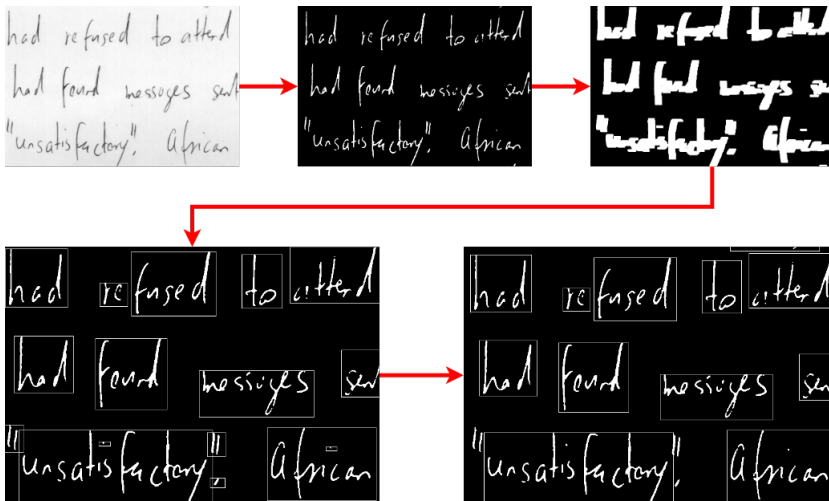 had refused to attend
had found messages sent
"unsatisfactory". African
had refused to attend
had found messages sent
"unsatisfactory". African
had refused to attend
had found messages
"unsatisfactory". African
had refused to attend
had found messages sent
"unsatisfactory". African
had refused to attend
had found messages
"unsatisfactory". African